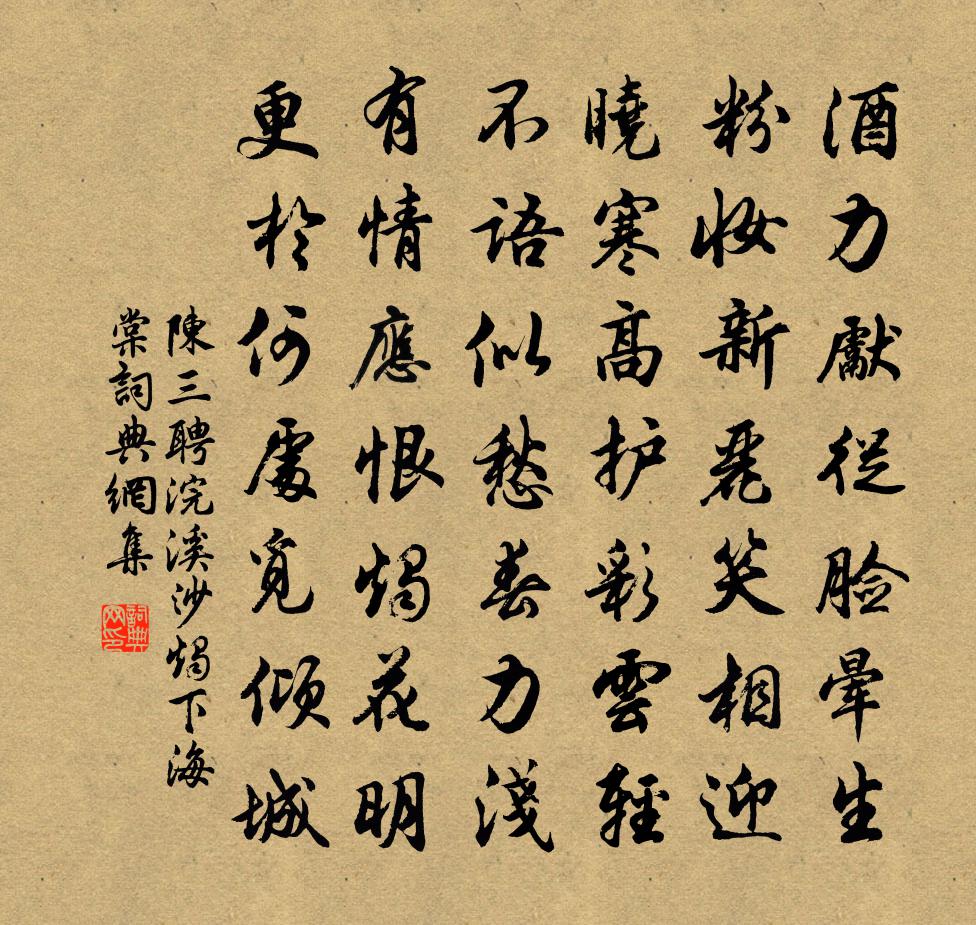 酒力獻從脸暈生
粉妆新麗笑相迎
曉寒高护彩雲輕
不語似愁春力淺
有情應恨燭花明
更於何處覓傾城
陳三聘浣溪沙燭下海
棠詞典網集
詞典
网印